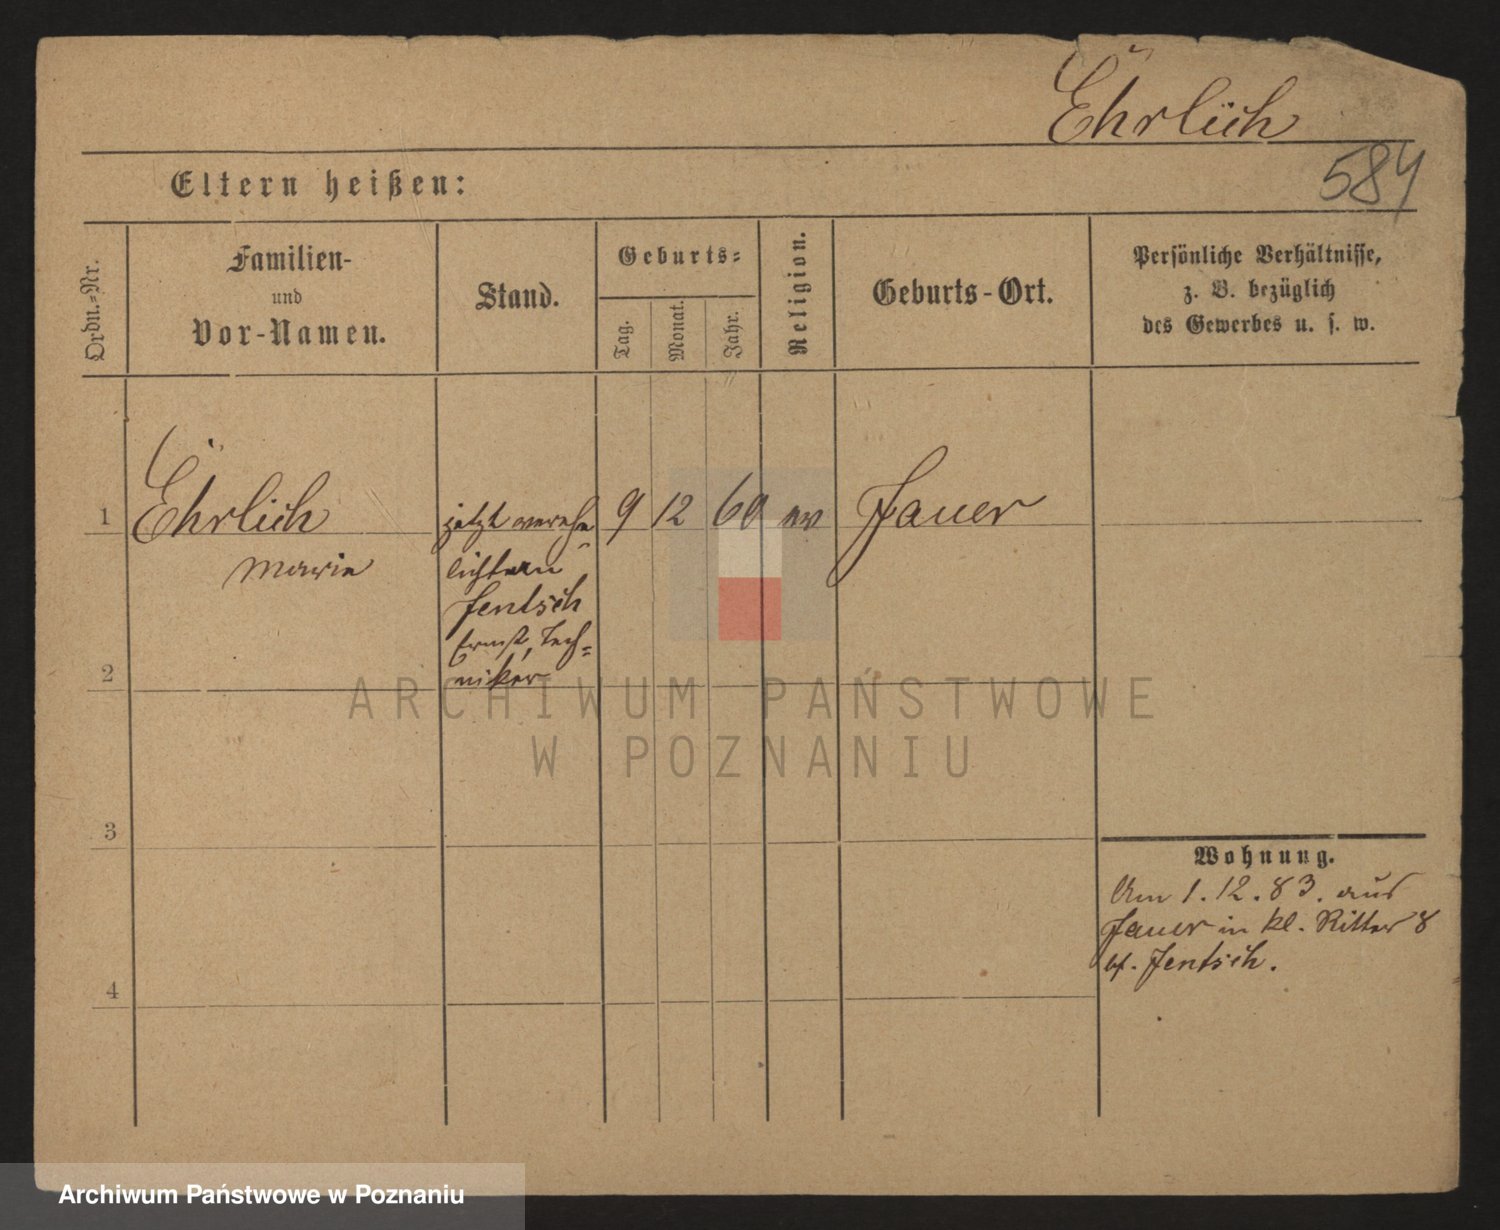 Ehrlich
584
Eltern heißen:
Ordn.-Nr.
Familien-
und
Vor-Namen.
Stand.
Geburts-
Tag.
Monat.
Jahr.
Religion.
Geburts-Ort.
Persönliche Verhältnisse,
z. B. bezüglich
des Gewerbes u. s. w.
1
Ehrlich
Marie
jetzt vereh-
lichten
Jentsch
Ernst, Tech-
niker
9 12 60 ev
Jauer
2
ARCHIWUM PAŃSTWOWE
W POZNANIU
3
4
Wohnung.
Am 1.12.83. aus
Jauer in kl. Ritter 8
bf. Jentsch.
Archiwum Państwowe w Poznaniu